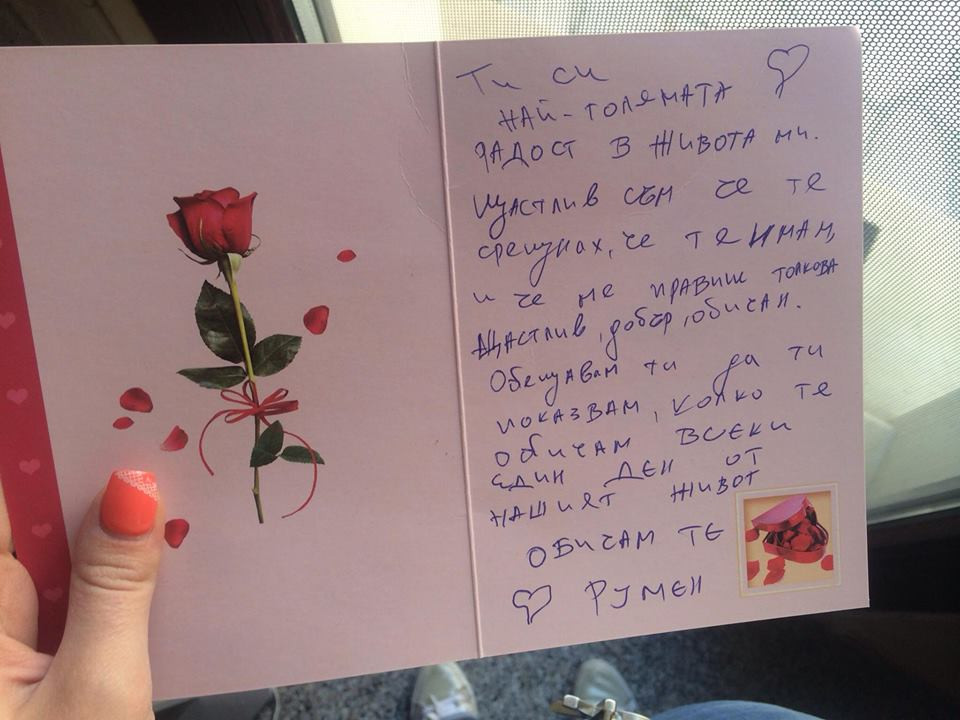 Ти си
НАЙ-ГОЛЯМАТА
РАДОСТ В ЖИВОТА МИ.
ЩАСТЛИВ СЪМ ЧЕ ТЕ
СРЕЩНАХ, ЧЕ ТЕ ИМАМ,
И ЧЕ МЕ ПРАВИШ ТОЛКОВА
ЩАСТЛИВ, ДОБЪР, ОБИЧАН.
ОБЕЩАВАМ ТИ ДА ТИ
ПОКАЗВАМ, КОЛКО ТЕ
ОБИЧАМ ВСЕКИ
ЕДИН ДЕН ОТ
НАШИЯТ ЖИВОТ
ОБИЧАМ ТЕ
РУМЕН